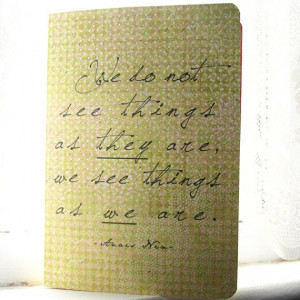 We do not
see things
as they are,
we see things
as we are.
-Anais Nin-